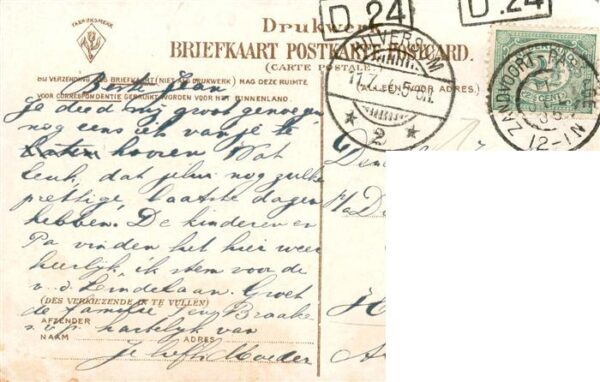 D.24
D.24
FABRIEKSMERK
Drukwerk
BRIEFKAART POSTKARTE POSTCARD.
(CARTE POSTALE)
BIJ VERZENDING ALS BRIEFKAART (NIET ALS DRUKWERK) MAG DEZE RUIMTE
VOOR CORRESPONDENTIE GEBRUIKT WORDEN VOOR HET BINNENLAND.
(ALLÉÉN VOOR ADRES.)
HILVERSUM
2
ZANDVOORT
12-1N
Beste Jean
Je deed mij groot genoegen
nog eens iets van je te
laten hooren Wat
leuk, dat jelui nog zulke
prettige, laatste dagen
hebben. De kinderen en
Pa vinden het hier weer
heerlijk, ik stem voor de
v. d. Lindelaan. Groet
(DES VERKIEZENDE IN TE VULLEN)
de familie Braake
AFZENDER
s.v.p. hartelijk van
NAAM ADRES
Je liefh Moeder
Den